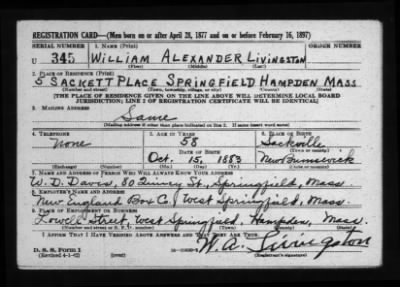 REGISTRATION CARD—(Men born on or after April 28, 1877 and on or before February 16, 1897)
SERIAL NUMBER 1. NAME (Print) ORDER NUMBER
U 345 WILLIAM ALEXANDER LIVINGSTON
(First) (Middle) (Last)
2. PLACE OF RESIDENCE (Print)
5 SACKETT PLACE SPRINGFIELD HAMPDEN MASS
(Number and street) (Town, township, village, or city) (County) (State)
[THE PLACE OF RESIDENCE GIVEN ON THE LINE ABOVE WILL DETERMINE LOCAL BOARD
JURISDICTION; LINE 2 OF REGISTRATION CERTIFICATE WILL BE IDENTICAL]
3. MAILING ADDRESS
Same
[Mailing address if other than place indicated on line 2. If same insert word same]
4. TELEPHONE 5. AGE IN YEARS 6. PLACE OF BIRTH
None 58 Sackville
DATE OF BIRTH (Town or county)
Oct. 15, 1883 New Brunswick
(Exchange) (Number) (Mo.) (Day) (Yr.) (State or country)
7. NAME AND ADDRESS OF PERSON WHO WILL ALWAYS KNOW YOUR ADDRESS
W. D. Davis, 80 Quincy St., Springfield, Mass.
8. EMPLOYER'S NAME AND ADDRESS
New England Box Co., West Springfield, Mass.
9. PLACE OF EMPLOYMENT OR BUSINESS
Lowell Street, West Springfield, Hampden, Mass.
(Number and street or R. F. D. number) (Town) (County) (State)
I AFFIRM THAT I HAVE VERIFIED ABOVE ANSWERS AND THAT THEY ARE TRUE.
D. S. S. Form 1
(Revised 4-1-42) (over) W. A. Livingston
(Registrant's signature)